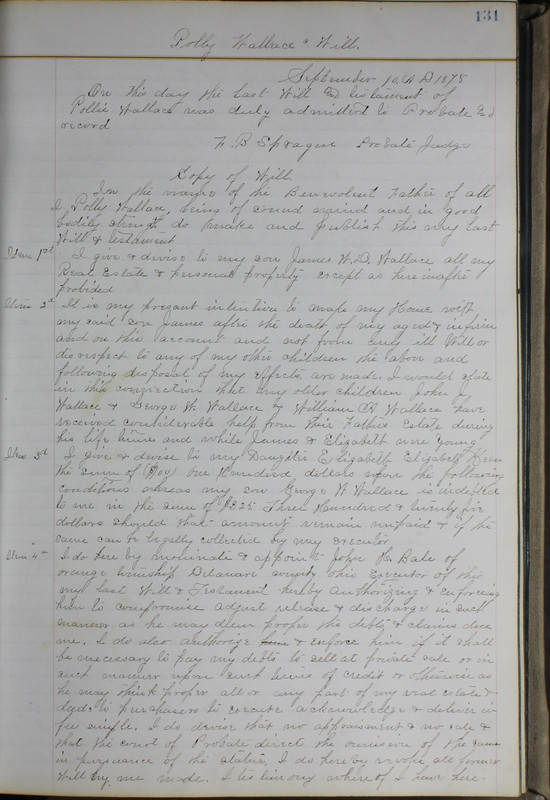 131
Polly Wallace's Will.
September 10, A D 1878
On this day the Last Will and testament of
Pollie Wallace was duly admitted to Probate and
record
F. B. Sprague Probate Judge
Copy of Will
In the name of the Benevolent Father of all
I Polly Wallace, being of sound mind and in good
bodily strength do make and publish this my Last
Will & testament
Item 1st I give & devise to my son James W.D. Wallace all my
Real Estate & personal property except as here inafter
provided
Item 2d It is my present intention to make my Home with
my said son James after the death of my aged & infirm
and on this account and not from any ill Will or
disrespect to any of my other children the above and
following disposals of my effects, are made. I would state
in this connection that my older children John
Wallace & George W. Wallace & William R Wallace have
received considerable help from their Fathers Estate during
his life time and while James & Elizabeth were young
Item 3d I give & devise to my Daughter Elizabeth Elizabeth
the sum of ($100) One Hundred dollars upon the following
conditions whereas my son George W Wallace is indebted
to me in the sum of $325 Three Hundred & twenty five
dollars should that amount remain unpaid & if the
same can be legally collected by my executor
Item 4th I do here by nominate & appoint John H. Bale of
orange township Delaware county ohio Executor of this
my last Will & Testament hereby authorizing &
him to compromise adjust release & discharge in such
manner as he may deem proper the debts & claims due
me. I do also authorize & him if it shall
be necessary to pay my debts to sell at private sale or in
such manner upon such terms of credit or otherwise as
he may think proper all or any part of my real estate &
deds to purchasers to execute acknowledge & deliver in
fee simple. I do desire that no appraisement & no sale &
that the court of Probate direct the omission of the same
in pursuance of the statue, I do here by revoke all former
Will by me made. I tes timony whereof I have here-